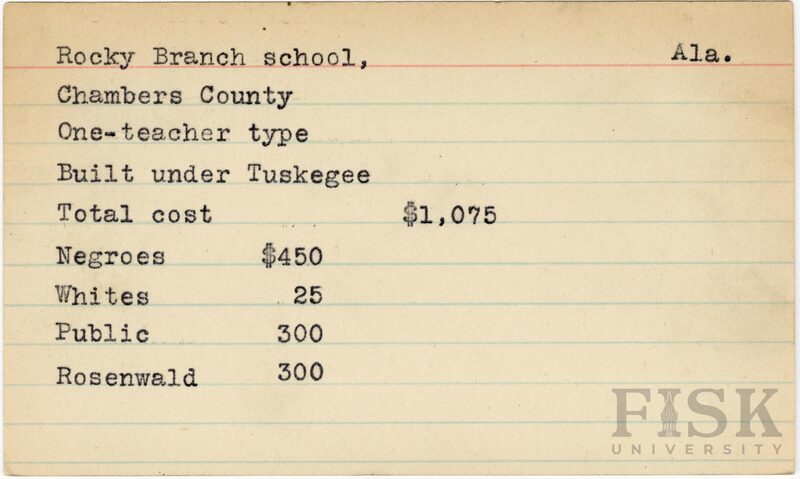 Rocky Branch school, Ala.
Chambers County
One-teacher type
Built under Tuskegee
Total cost $1,075
Negroes $450
Whites 25
Public 300
Rosenwald 300
FISK
UNIVERSITY